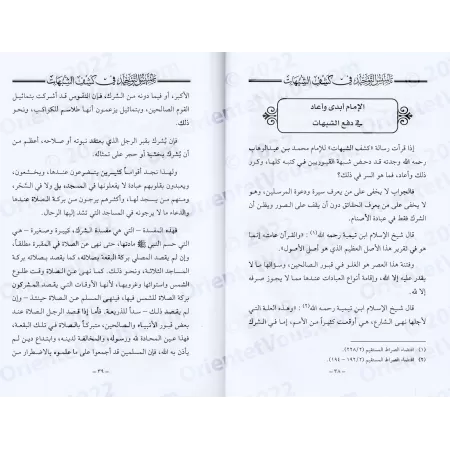 في كشف الشبهات
الإمام أبدى وأعاد
في دفع الشبهات
إذا قرأت رسالة «كشف الشبهات» للإمام محمد بن عبدالوهاب
رحمه الله وجدته قد حص شبهة القبوريين في كتبه كلها، وكرر
ذلك وأعاد، فما هو السر في ذلك؟
فالجواب لا يخفى على من يعرف سيرة ودعوة المرسلين، وهو
لا يخفى على من يعرف الحقائق دون أن يقف على الصور ويظن أن
الشرك فقط في عبادة الأصنام.
قال شيخ الإسلام ابن تيمية رحمه الله(١): «والقرآن عامته إنما
هو في تقرير هذا الأصل العظيم الذي هو أصل الأصول».
وفتنة هذا العصر هو الغلو في قبور الصالحين، وسؤالها ما لا
يقدر عليه إلا الله، وإقامة أنواع العبادات عندها مما لا يجوز صرفه
إلا لله.
قال شيخ الإسلام ابن تيمية رحمه الله(٢): «وهذه العلة التي
لأجلها نهى الشارع، هي أوقعت كثيراً من الأمم، إما في الشرك
(١) اقتضاء الصراط المستقيم
(٢) اقتضاء الصراط المستقيم (١٩٢/٢ - ١٩٤).
- ٣٨ -
في كشف الشبهات
الأكبر، أو فيما دونه من الشرك، فإن النفوس قد أشركت بتماثيل
القوم الصالحين، وبتماثيل يزعمون أنها طلاسم للكواكب، ونحو
ذلك.
فإن يُشرك بقبر الرجل الذي يعتقد نبوته أو صلاحه، أعظم من
أن يُشرك بخشبة أو حجر على تمثاله.
ولهذا تجد أقواماً كثيرين يتضرعون عندها، ويخشعون،
ويعبدون بقلوبهم عبادة لا يفعلونها في المسجد، بل ولا في السَّحَر،
ومنهم من يسجد لها، وأكثرهم يرجون من بركة الصلاة عندها
والدعاء ما لا يرجونه في المساجد التي تشد إليها الرحال.
فهذه المفسدة - التي هي مفسدة الشرك، كبيرة وصغيرة - هي
التي حسم النبي ﷺ مادتها، حتى نهى عن الصلاة في المقبرة مطلقاً،
وإن لم يقصد المصلي بركة البقعة بصلاته، كما يقصد بصلاته بركة
المساجد الثلاثة، ونحو ذلك. كما نهى عن الصلاة وقت طلوع
الشمس واستوائها وغروبها، لأنها الأوقات التي يقصد المشركون
بركة الصلاة للشمس فيها، فنهى المسلم عن الصلاة حينئذ - وإن
لم يقصد ذلك - سداً للذريعة. فأما إذا قصد الرجل الصلاة عند
بعض قبور الأنبياء والصالحين، متبركاً بالصلاة في تلك البقعة،
فهذا عين المحادة لله ورسوله، والمخالفة لدينه، وابتداع دين لم
يأذن به الله، فإن المسلمين قد أجمعوا على ما علموه بالاضطرار من
- ٣٩ -